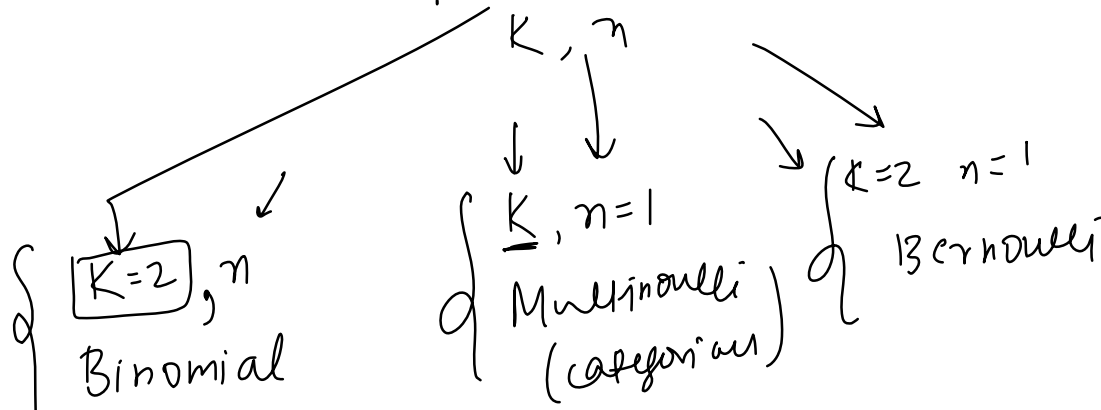 K, n
K=2, n
Binomial
K, n=1
Multinoulli
(categorical)
K=2 n=1
Bernoulli